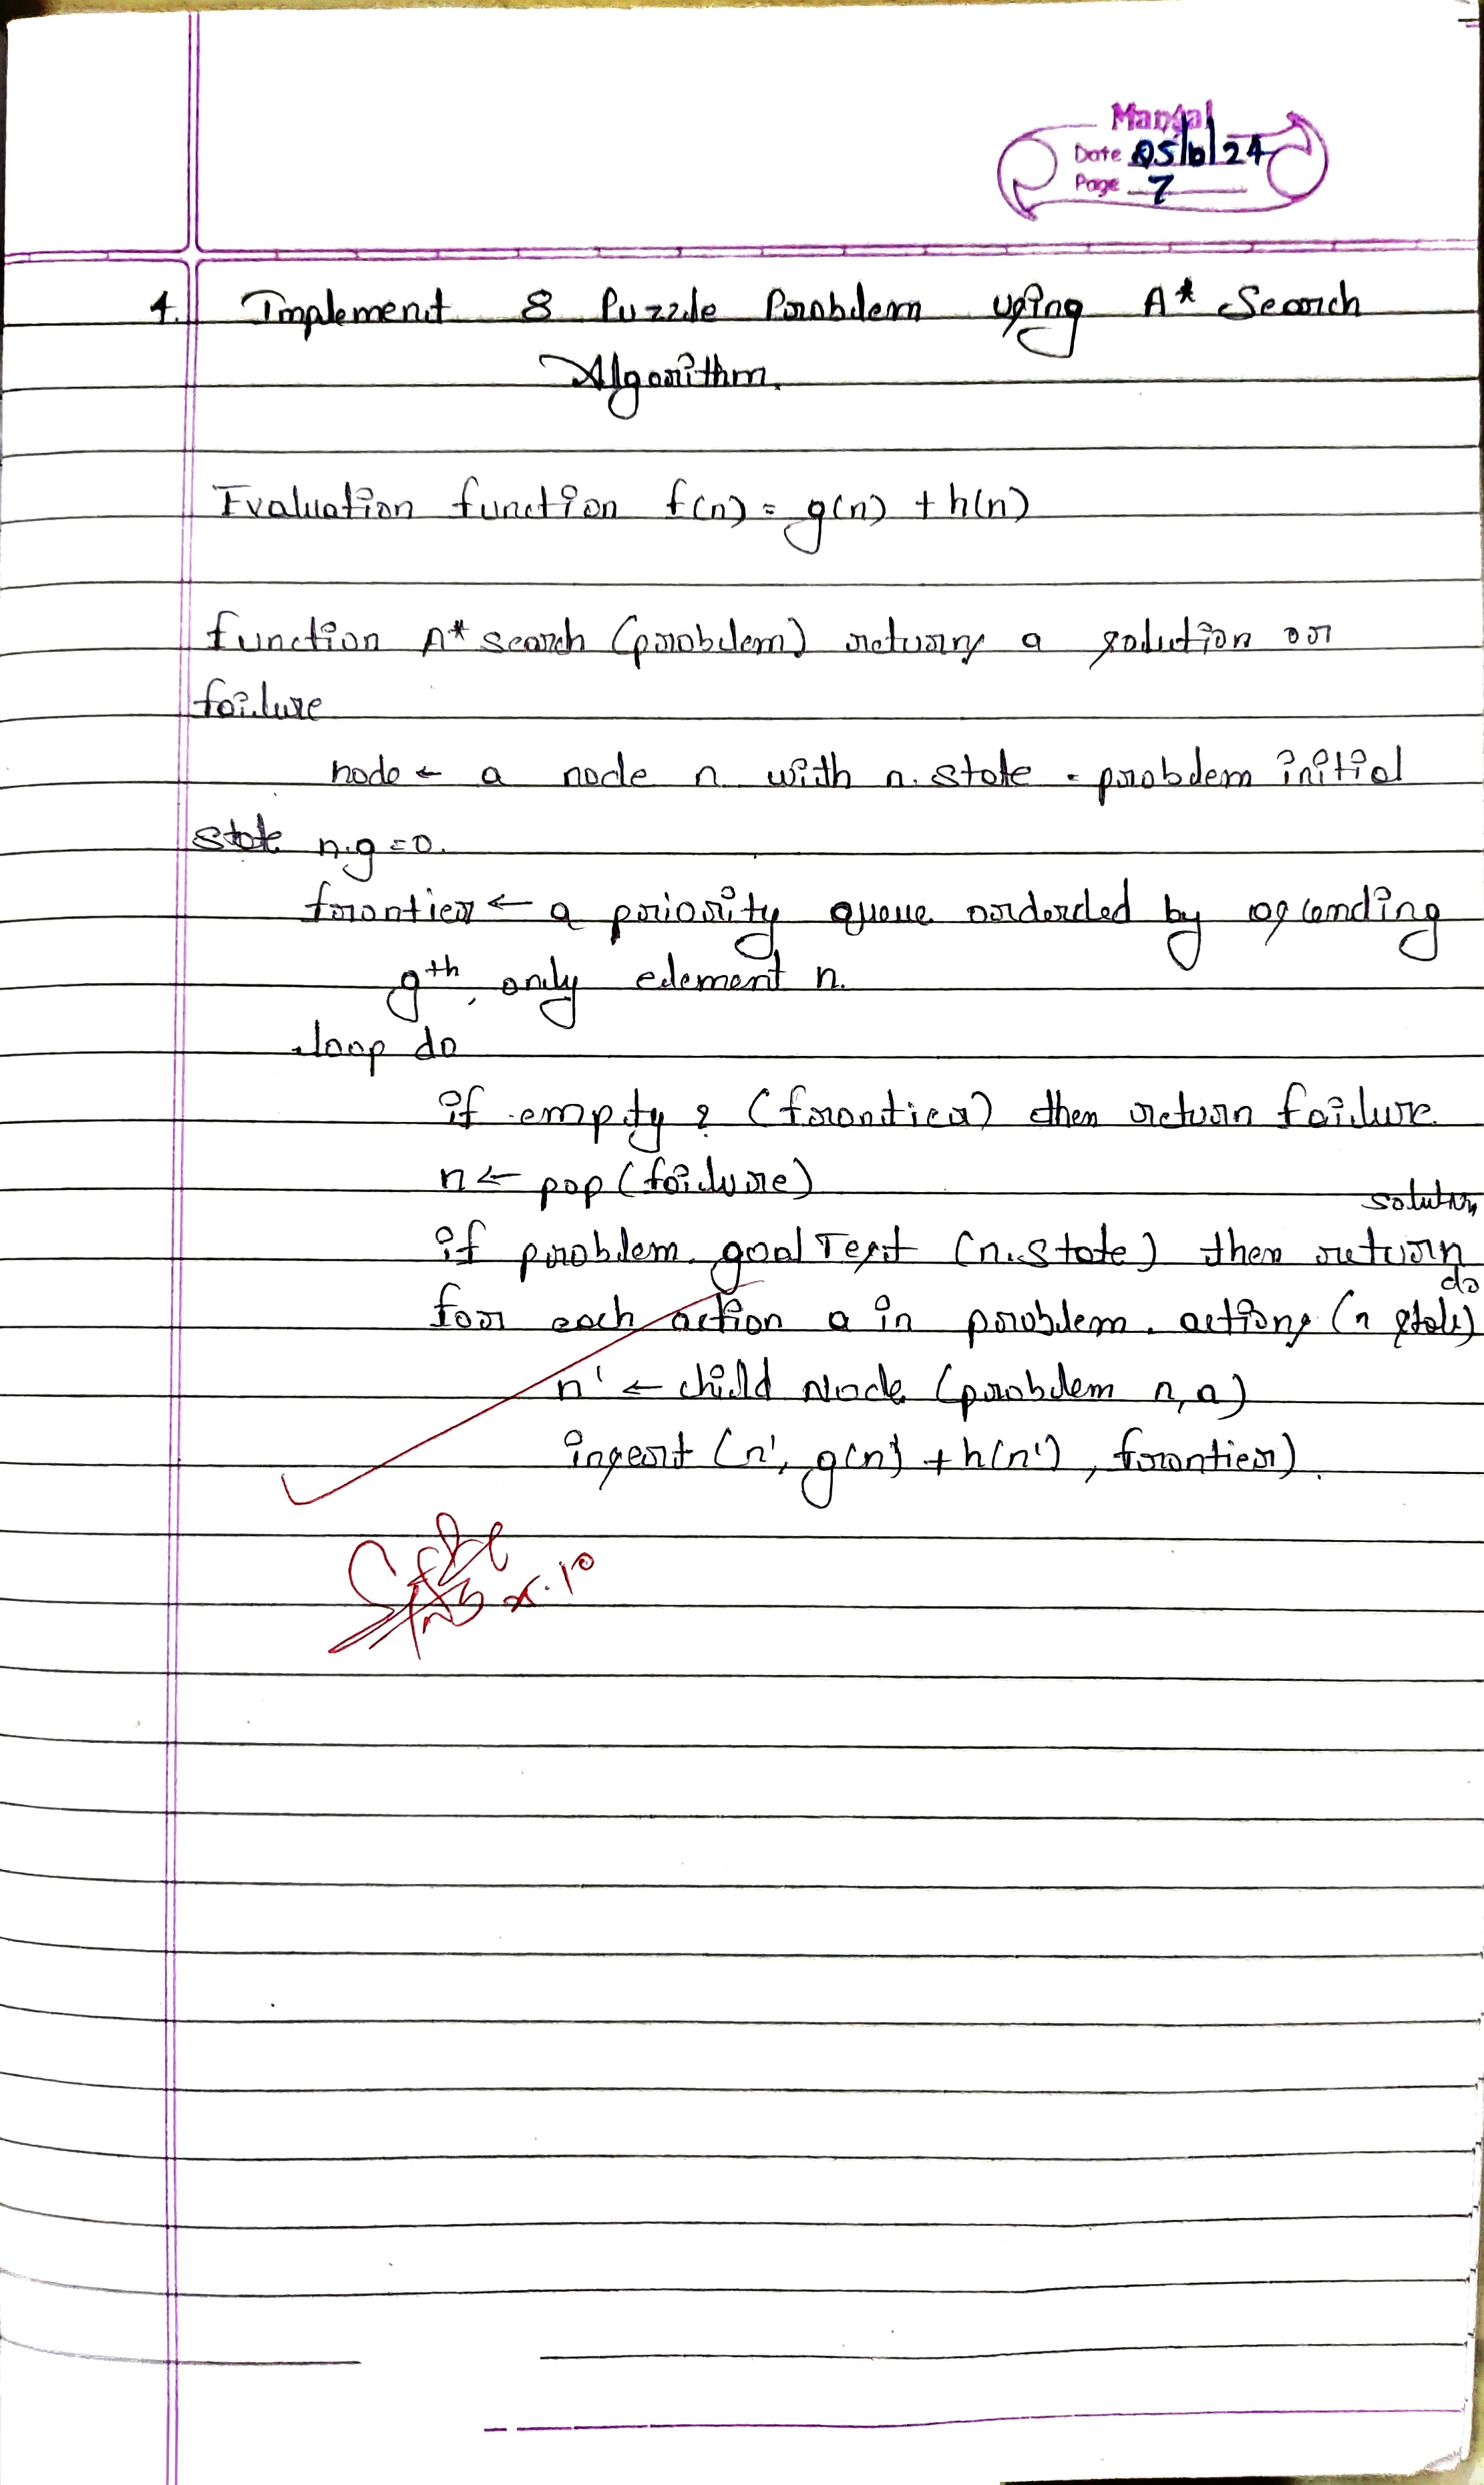 Mangal
Date 05/10/24
Page 7
4. Implement 8 Puzzle Problem using A* Search
Algorithm.
Evaluation function f(n) = g(n) + h(n)
function A* search (problem) returns a solution or
failure
node ← a node n with n.state = problem initial
state n.g=0.
frontier ← a priority queue orderded by ascending
gth, only element n.
loop do
if empty ? (frontier) then return failure
n ← pop (failure)
if problem. goalTest (n.state) then return solution
for each action a in problem. actions (n state) do
n' ← child Node (problem n, a)
insert (n', g(n') + h(n'), frontier).